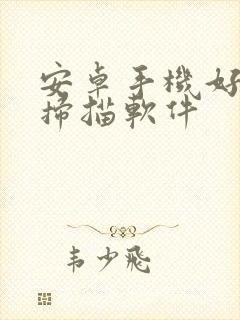 安卓手機好
掃描軟件
韦少飛